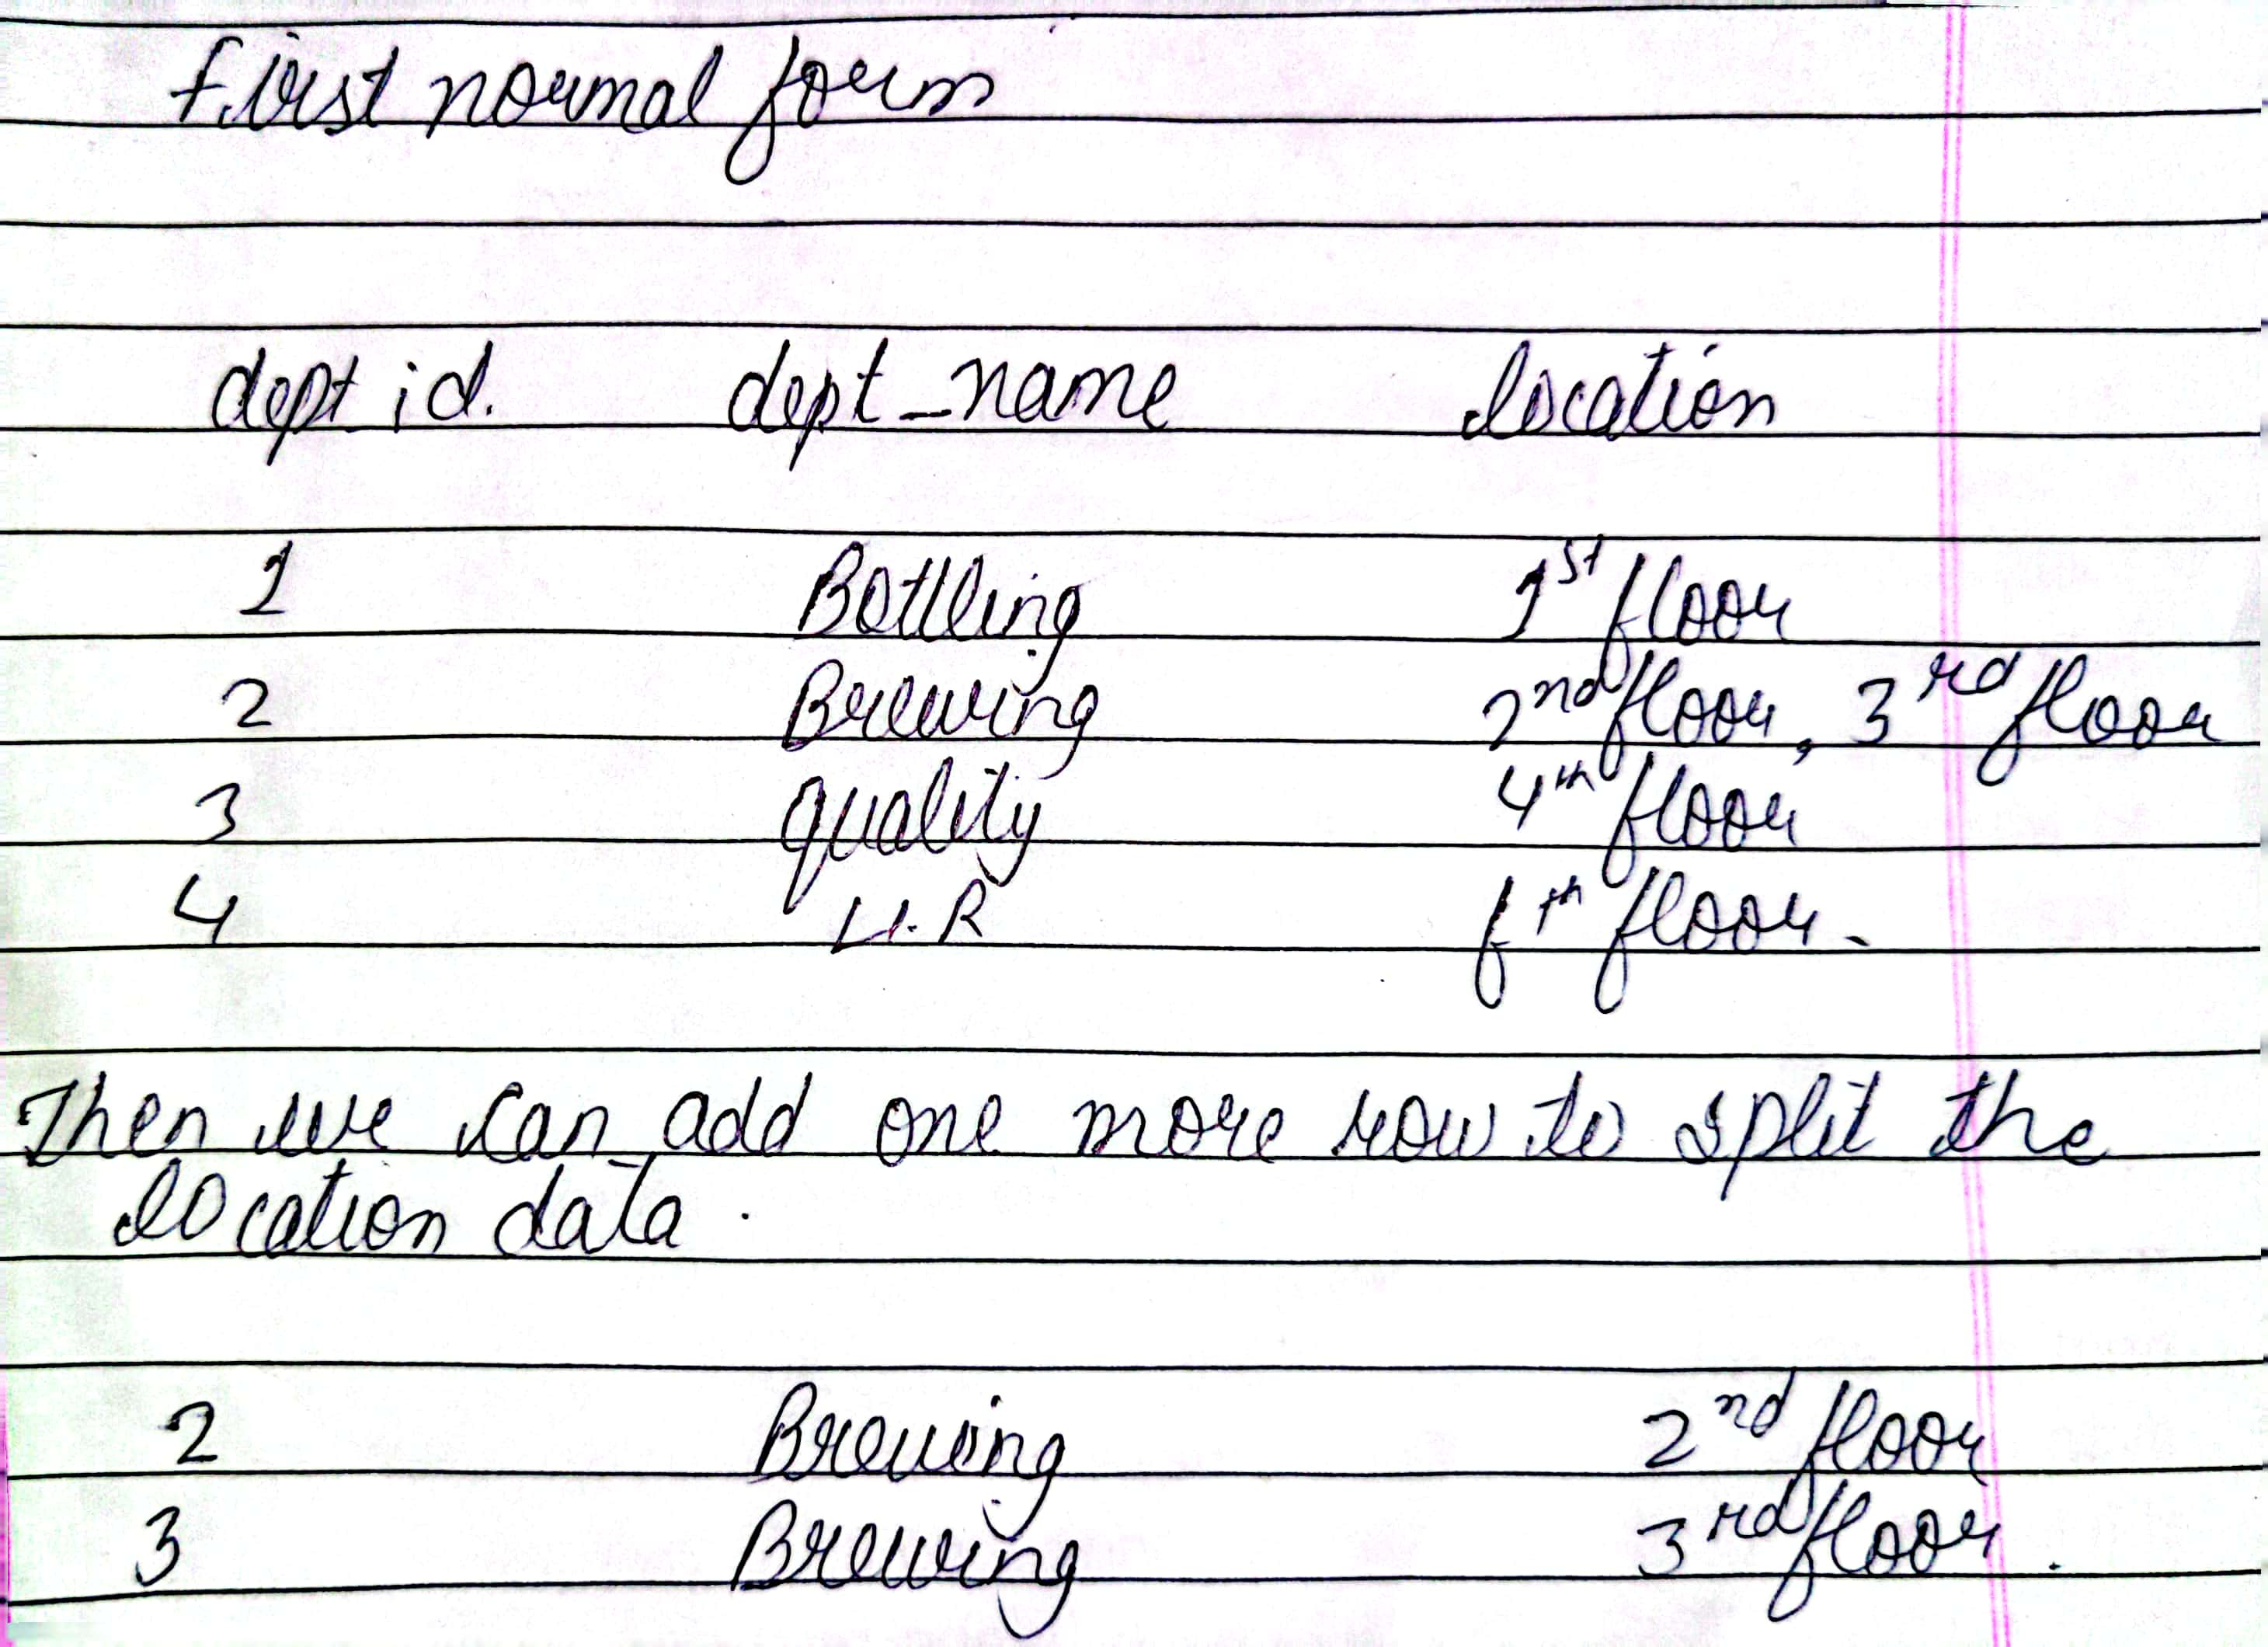 first normal form
dept id. dept_name location
1 Bottling 1st floor
2 Brewing 2nd floor, 3rd floor
3 quality 4th floor
4 H.R floor.
Then we can add one more row to split the
location data.
2 Brewing 2nd floor
3 Brewing 3rd floor.